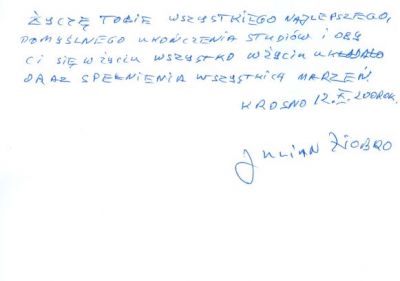 ŻYCZĘ TOBIE WSZYSTKIEGO NAJLEPSZEGO,
POMYŚLNEGO UKOŃCZENIA STUDIÓW I OBY
CI SIĘ W ŻYCIU WSZYSTKO W ŻYCIU UKŁADAŁO
ORAZ SPEŁNIENIA WSZYSTKICH MARZEŃ.
KROSNO 12.X.200 ROK.
JULIAN ZIOBRO